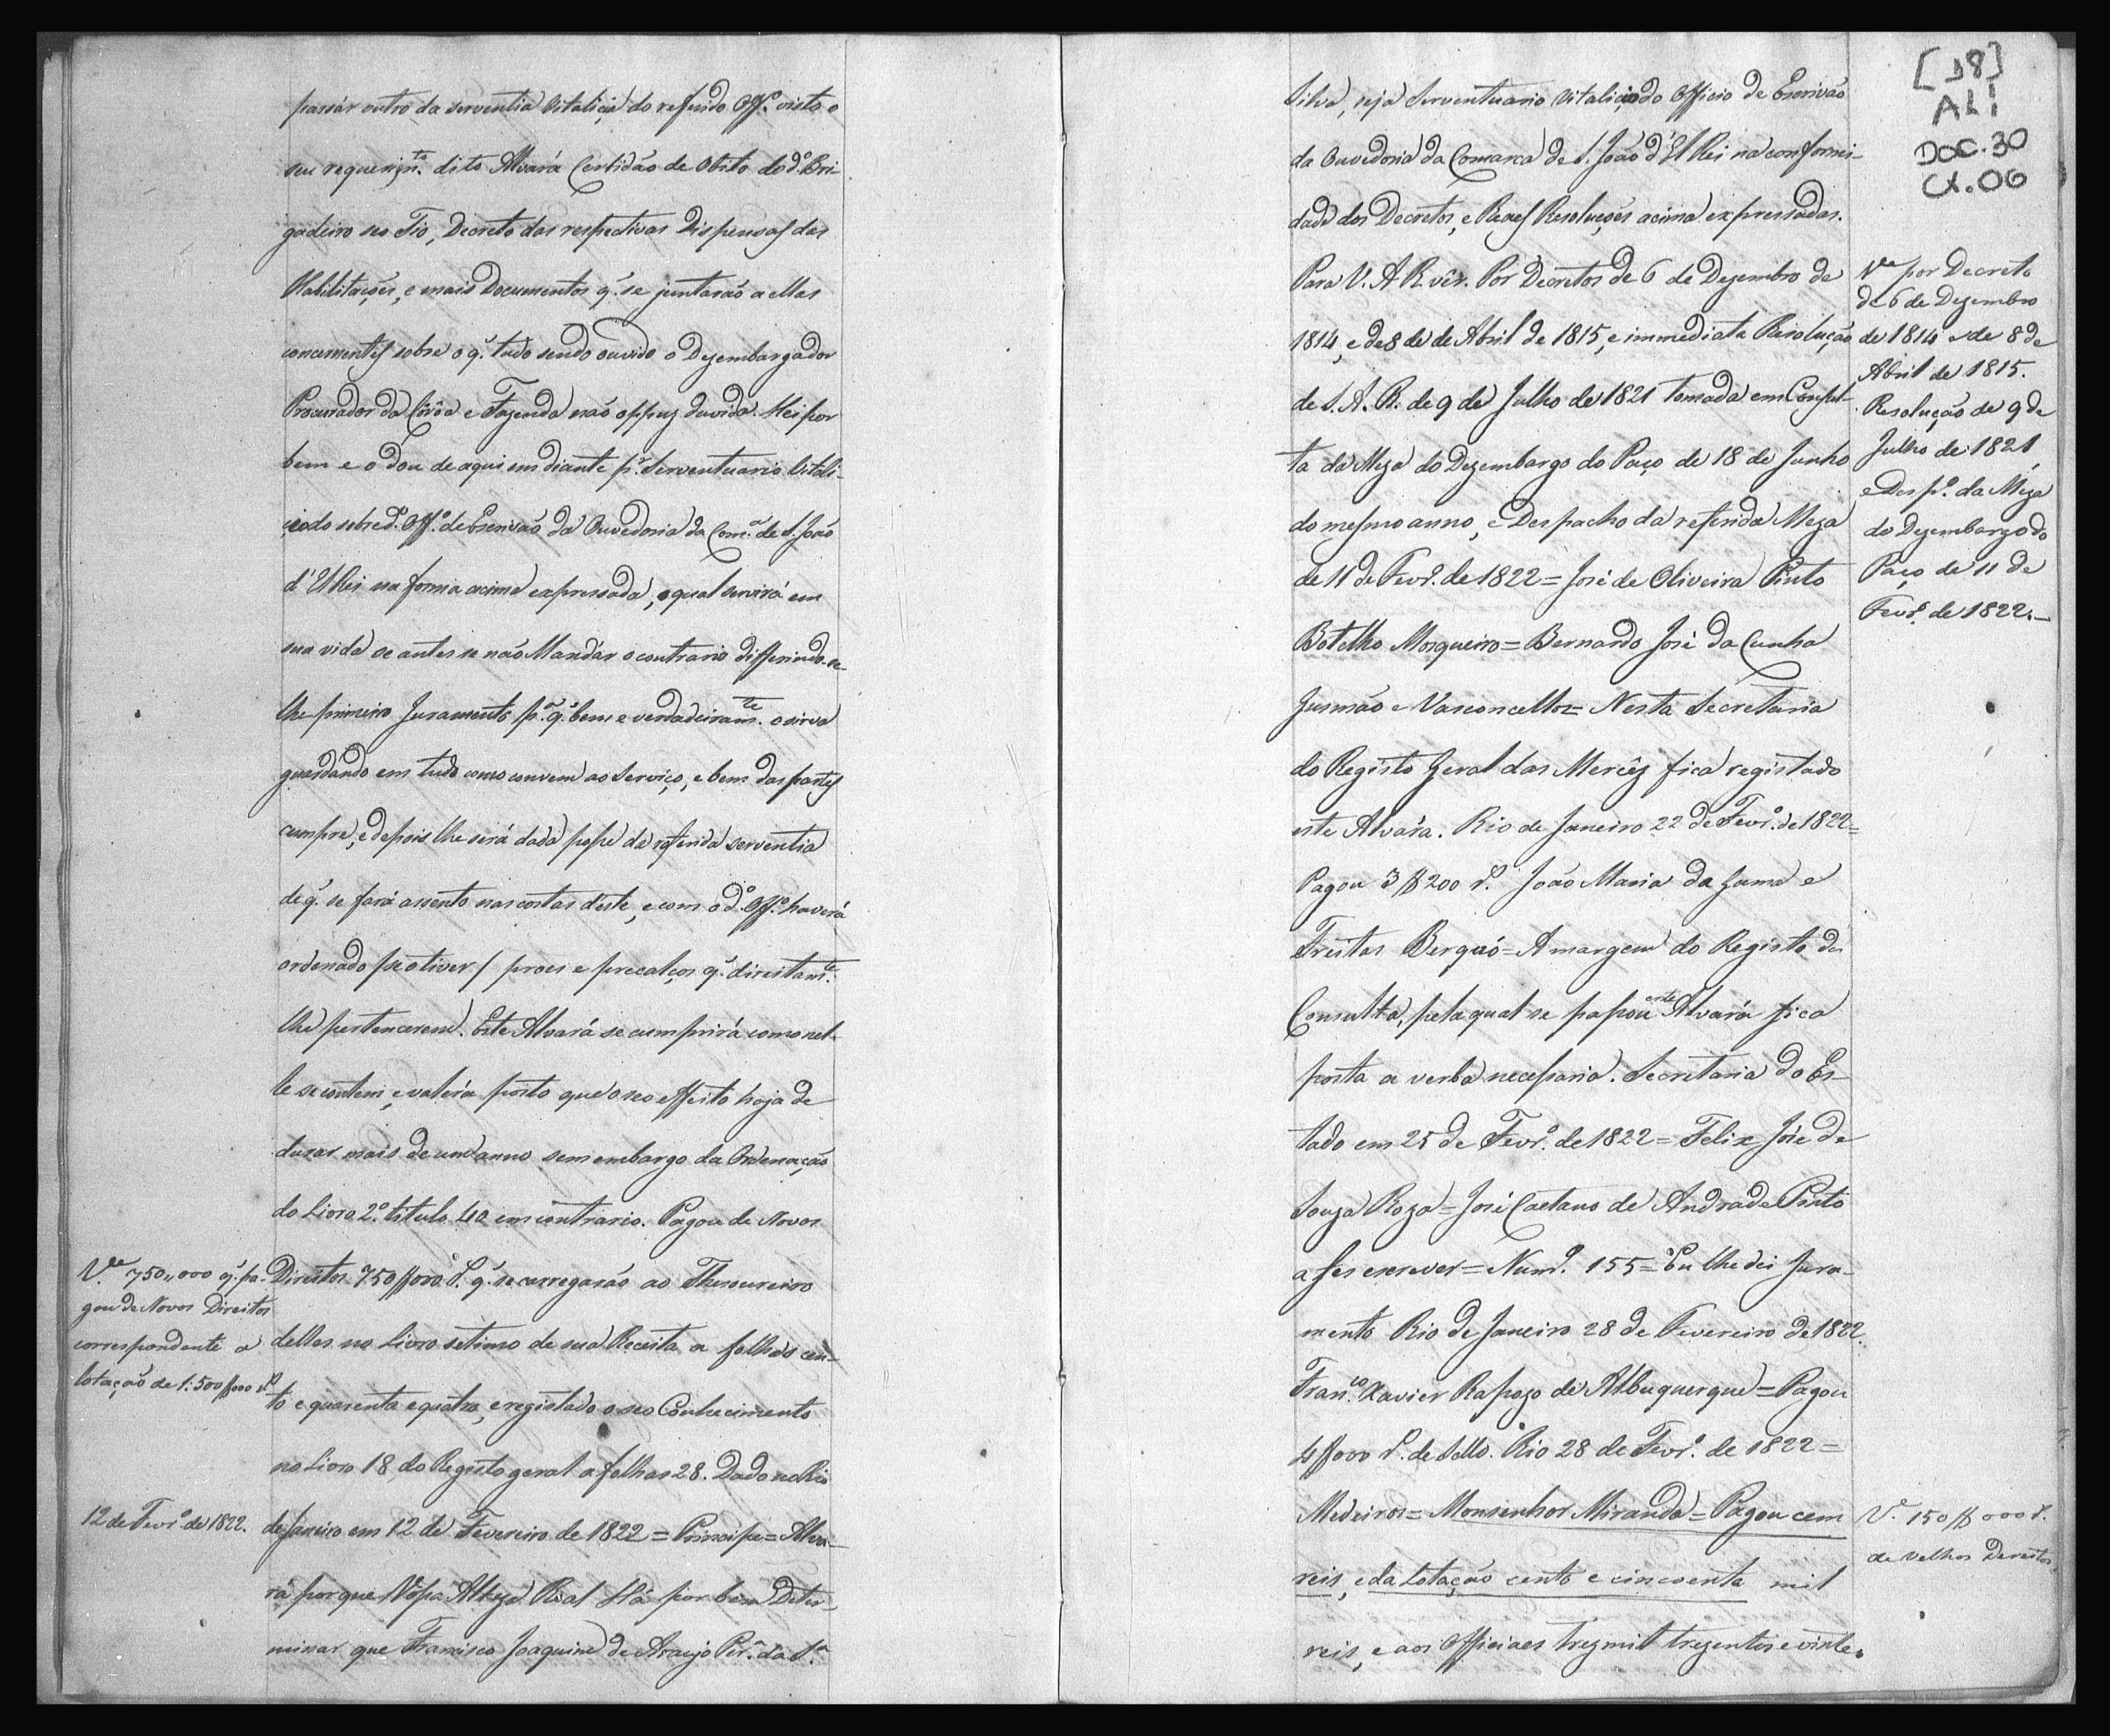 passár outro da serventia Vitaliçia do referido Off.º visto o
seu requerim.to dito Alvará Certidão de Obito do d.º Bri-
gadeiro seo Tio, Decreto das respectivas Dispensas das
Habilitações, e mais Documentos q̃ se juntarão a ellas
concernentes sobre o q̃ tudo sendo ouvido o Dezembargador
Procurador da Corôa e Fazenda não oppoz duvida. Hei por
bem e o dou de aqui em diante p.r Serventuario Vitali-
çio do sobred.º Off.º de Escrivão da Ouvedoria da Com.ª de S. João
d'El Rei na forma acima expressada, o qual servirá em
sua vida se antes se não Mandár o contrario differindo-se-
lhe primeiro Juramento p.ª q̃ bem e verdadeiram.te o sirva
guardando em tudo como convem ao Serviço, e bem das partes
cumpre, e depois lhe será dada posse da referida serventia
de q̃ se fará assento nas costas déste, e com o d.º Off.º haverá
ordenado /se o tiver/ proes e precalços q̃ direitam.te
lhe pertencerem. Este Alvará se cumprirá como nel-
le se contem, e valerá posto que o seo effeito haja de
durar mais de um anno sem embargo da Ordenação
do Livro 2.º titulo 40 em contrario. Pagou de Novos
V.de 750,,000 q̃ pa-
gou de Novos Direitos
correspondente a
lotação de 1:500$000 r.s
Direitos 750$000 r.s q̃ se carregarão ao Thesoureiro
delles no Livro setimo de sua Receita a folhas cen-
to e quarenta e quatro, e registado o seo Conhecimento
no Livro 18 do Registo geral a folhas 28. Dado no Rio
12 de Fevr.º de 1822.
de Janeiro em 12 de Fevereiro de 1822 = Principe = Alva-
rá porque Vossa Alteza Real Há por bem Deter-
minar que Francisco Joaquim de Araujo Per.ª da S.ª
[38]
ALI
DOC.30
CX.06
Silva, seja Serventuario Vitaliçio do Officio de Escrivão
da Ouvedoria da Comarca de S. João d'El Rei na conformi-
dade dos Decretos, e Reaes Resoluções acima expressadas.
Para V. A. R. vêr. Por Decretos de 6 de Dezembro de
1814, e de 8 de de Abril de 1815, e immediata Resolução
de S. A. R. de 9 de Julho de 1821 tomada em Consul-
ta da Meza do Dezembargo do Paço de 18 de Junho
do mesmo anno, e Despacho da referida Meza
de 11 de Fevr.º de 1822 = José de Oliveira Pinto
Botelho Mosqueiro = Bernardo José da Cunha
Gusmão e Vasconcellos = Nesta Secretaria
do Registo Geral das Mercêz fica registado
este Alvará. Rio de Janeiro 22 de Fevr.º de 1822 =
Pagou 3$200 r.s João Maria da Gama e
Freitas Berquó = A margem do Registo da
Consulta, pela qual se passou este Alvará fica
posta a verba necessaria. Secretaria do Es-
tado em 25 de Fevr.º de 1822 = Felix José de
Souza Roza = José Caetano de Andrade Pinto
a fes escrever = Num.º 155 = Eu lhe dei Jura-
mento Rio de Janeiro 28 de Fevereiro de 1822.
Fran.co Xavier Rapozo de Albuquerque = Pagou
4$000 r.s de Sello. Rio 28 de Fevr.º de 1822 =
Medeiros = Monsenhor Miranda = Pagou cem
reis, e da Lotação cento e cincoenta mil
reis, e aos Officiaes trez mil trezentos e vinte.
V.de por Decreto
de 6 de Dezembro
de 1814 e de 8 de
Abril de 1815.
Resolução de 9 de
Julho de 1821,
e Desp.º da Meza
do Dezembargo do
Paço de 11 de
Fevr.º de 1822.—
V.e 150$000 r.s
de Velhos Direitos